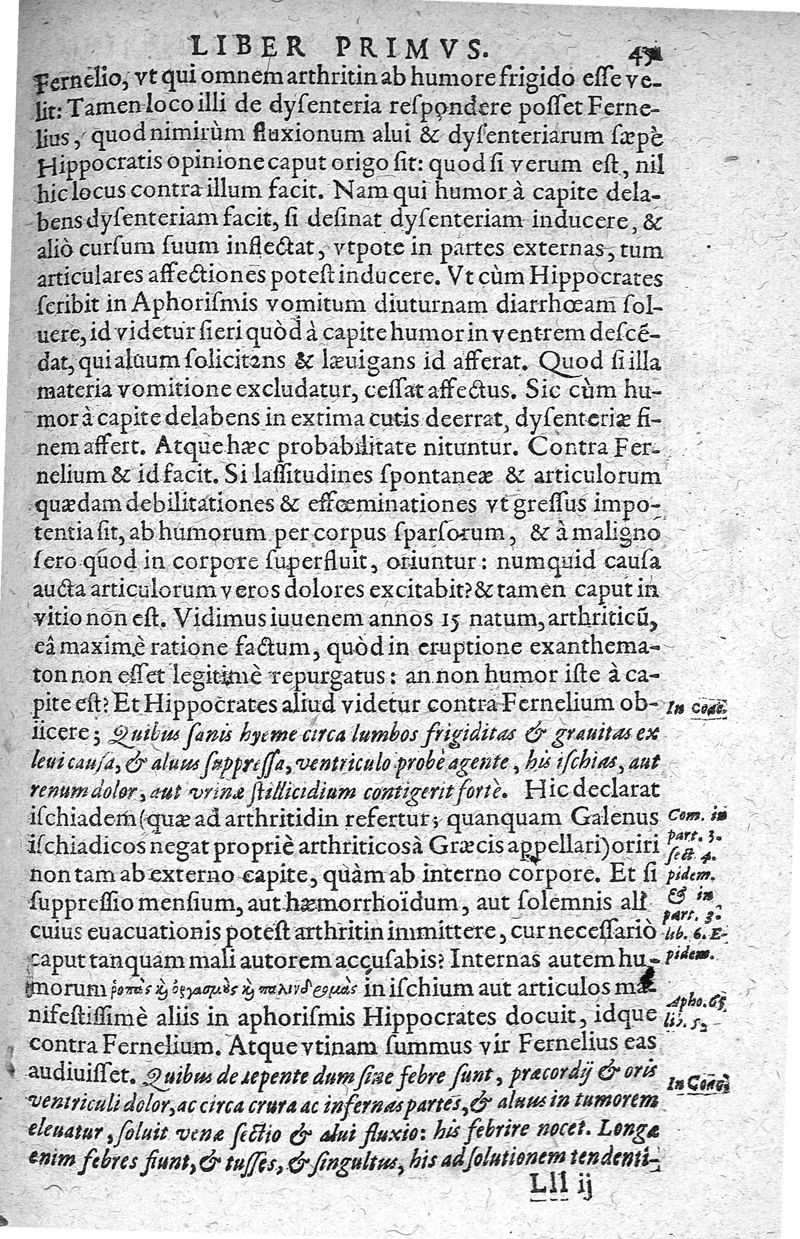 LIBER PRIMVS.
Fernelio, vt qui omnem arthritin ab humore frigido esse ve-
lit: Tamen loco illi de dysenteria respondere posset Ferne-
lius, quod nimirùm fluxionum alui & dysenteriarum sæpè
Hippocratis opinione caput origo sit: quod si verum est, nil
hic locus contra illum facit. Nam qui humor à capite dela-
bens dysenteriam facit, si desinat dysenteriam inducere, &
aliò cursum suum inflectat, vtpote in partes externas, tum
articulares affectiones potest inducere. Vt cùm Hippocrates
scribit in Aphorismis vomitum diuturnam diarrhœam sol-
uere, id videtur fieri quòd à capite humor in ventrem descẽ-
dat, qui aluum solicitans & læuigans id afferat. Quod si illa
materia vomitione excludatur, cessat affectus. Sic cùm hu-
mor à capite delabens in extima cutis deerrat, dysenteriæ fi-
nem affert. Atque hæc probabilitate nituntur. Contra Fer-
nelium & id facit. Si lassitudines spontaneæ & articulorum
quædam debilitationes & effœminationes vt gressus impo-
tentia sit, ab humorum per corpus sparsorum, & à maligno
sero quod in corpore superfluit, oriuntur: numquid causa
aucta articulorum veros dolores excitabit? & tamen caput in
vitio non est. Vidimus iuuenem annos 15 natum, arthriticũ,
eâ maximè ratione factum, quòd in eruptione exanthema-
ton non esset legitimè repurgatus: an non humor iste à ca-
pite est? Et Hippocrates aliud videtur contra Fernelium ob-
iicere; Quibus sanis hyeme circa lumbos frigiditas & grauitas ex
leui causa, & aluus suppressa, ventriculo probè agente, his ischias, aut
renum dolor, aut vrinæ stillicidium contigerit fortè. Hic declarat
ischiadem (quæ ad arthritidin refertur; quanquam Galenus
ischiadicos negat propriè arthriticos à Græcis appellari) oriri
non tam ab externo capite, quàm ab interno corpore. Et si
suppressio mensium, aut hæmorrhoïdum, aut solemnis ali
cuius euacuationis potest arthritin immittere, cur necessariò
caput tanquam mali autorem accusabis? Internas autem hu-
morum ῥοπὰς καὶ ὀργασμὸς καὶ παλινδρομὰς in ischium aut articulos ma-
nifestissimè aliis in aphorismis Hippocrates docuit, idque
contra Fernelium. Atque vtinam summus vir Fernelius eas
audiuisset. Quibus derepente dum sine febre sunt, præcordij & oris
ventriculi dolor, ac circa crura ac infernas partes, & aluus in tumorem
eleuatur, soluit venæ sectio & alui fluxio: his febrire nocet. Longæ
enim febres fiunt, & tusses, & singultus, his ad solutionem tendenti-
Lll ij
In Coac.
Com. in
part. 3.
sect. 4.
pidem.
& in
part. 3.
lib. 6. E-
pidem.
Apho. 65
lib. 5.
In Coac.